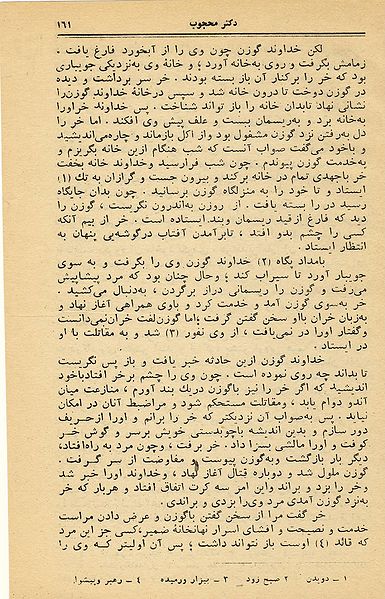 دکتر محجوب ۱۶۱
لکن خداوند گوزن چون وی را از آبخورد فارغ یافت ،
زمامش بگرفت و روی به‌خانه آورد ؛ و خانهٔ وی به‌نزدیکی جویباری
بود که خر را برکنار آن باز بسته بودند . خر سر برداشت و دیده
در گوزن دوخت تا درون خانه شد و سپس درخانهٔ خداوند گوزن‌را
نشانی نهاد تابدان خانه را باز تواند شناخت . پس خداوند خراورا
به‌خانه برد و به‌ریسمان ببست و علف پیش وی افکند . اما خر را
دل به‌رفتن نزد گوزن مشغول بود واز اکل بازماند و چاره‌می‌اندیشید
و باخود می‌گفت صواب آنست که شب هنگام ازین خانه بگریزم و
به‌خدمت گوزن پیوندم . چون شب فرارسید وخداوند خانه بخفت
خر باجهدی تمام در خانه برکند و بیرون جست و گرازان به تك (۱)
ایستاد و تا خود را به منزلگاه گوزن برسانید . چون بدان جایگاه
رسید در را بسته یافت . از روزن به‌اندرون نگریست ، گوزن را
دید که فارغ ازقید ریسمان وبند.ایستاده است . خر از بیم آنکه
کسی را چشم بدو افتد ، تابرآمدن آفتاب درگوشه‌یی پنهان به
انتظار ایستاد .
بامداد پگاه (۲) خداوند گوزن وی را بگرفت و به سوی
جویبار آورد تا سیراب کند ؛ وحال چنان بود که مرد پیشاپیش
می‌رفت و گوزن را ریسمانی دراز برگردن ، به‌دنبال می‌کشید .
خر به‌سوی گوزن آمد و خدمت کرد و باوی همراهی آغاز نهاد و
به‌زبان خران بااو سخن گفتن گرفت ؛اما گوزن‌لغت خران‌نمی‌دانست
وگفتار اورا در نمی‌یافت ، از وی نفور (۳) شد و به مقاتلت با او
در ایستاد .
خداوند گوزن ازین حادثه خبر یافت و باز پس نگریست
تا بداند چه روی نموده است . چون وی را چشم برخر افتادباخود
اندیشید که اگر خر را نیز باگوزن دریك بند آورم ، منازعت میان
آندو دوام یابد ، ومقاتلت مستحکم شود و مراضبط آنان در امکان
نیاید . پس به‌صواب آن نزدیکتر که خر را برانم و اورا ازحریف
دور سازم و بدین اندیشه باچوبدستی خویش برسر و گوش خر
کوفت و اورا مالشی بسزا داد . خر برفت ، وچون مرد به راه‌افتاد،
دیگر بار بازگشت وبه‌گوزن پیوست و مفاوضت از سر گرفت .
گوزن ملول شد و دوباره قتال آغاز نهاد ، وخداوند اورا خبر شد
و خر را بزد و براند واین امر سه کرت اتفاق افتاد و هربار که خر
به‌نزد گوزن آمدی مرد وی‌را بزدی و براندی .
خر گفت مرا از سخن گفتن باگوزن و عرض دادن مراسم
خدمت و نصیحت و افشای اسرار نهانخانهٔ ضمیر،کسی جز این مرد
که قائد (٤) اوست باز نتواند داشت ؛ پس آن اولیتر که وی را
۱ ـ دویدن ۲ صبح زود ۳ ـ بیزار ورمیده ٤ ـ رهبر وپیشوا.